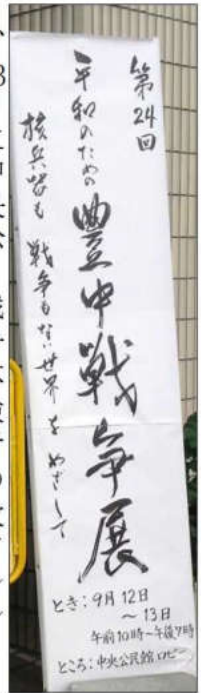 第24回
平和のための豊中戦争展
核兵器も戦争もない世界をめざして
とき:9月12日
～13日
午前10時～午後7時
ところ:中央公民館ロビー